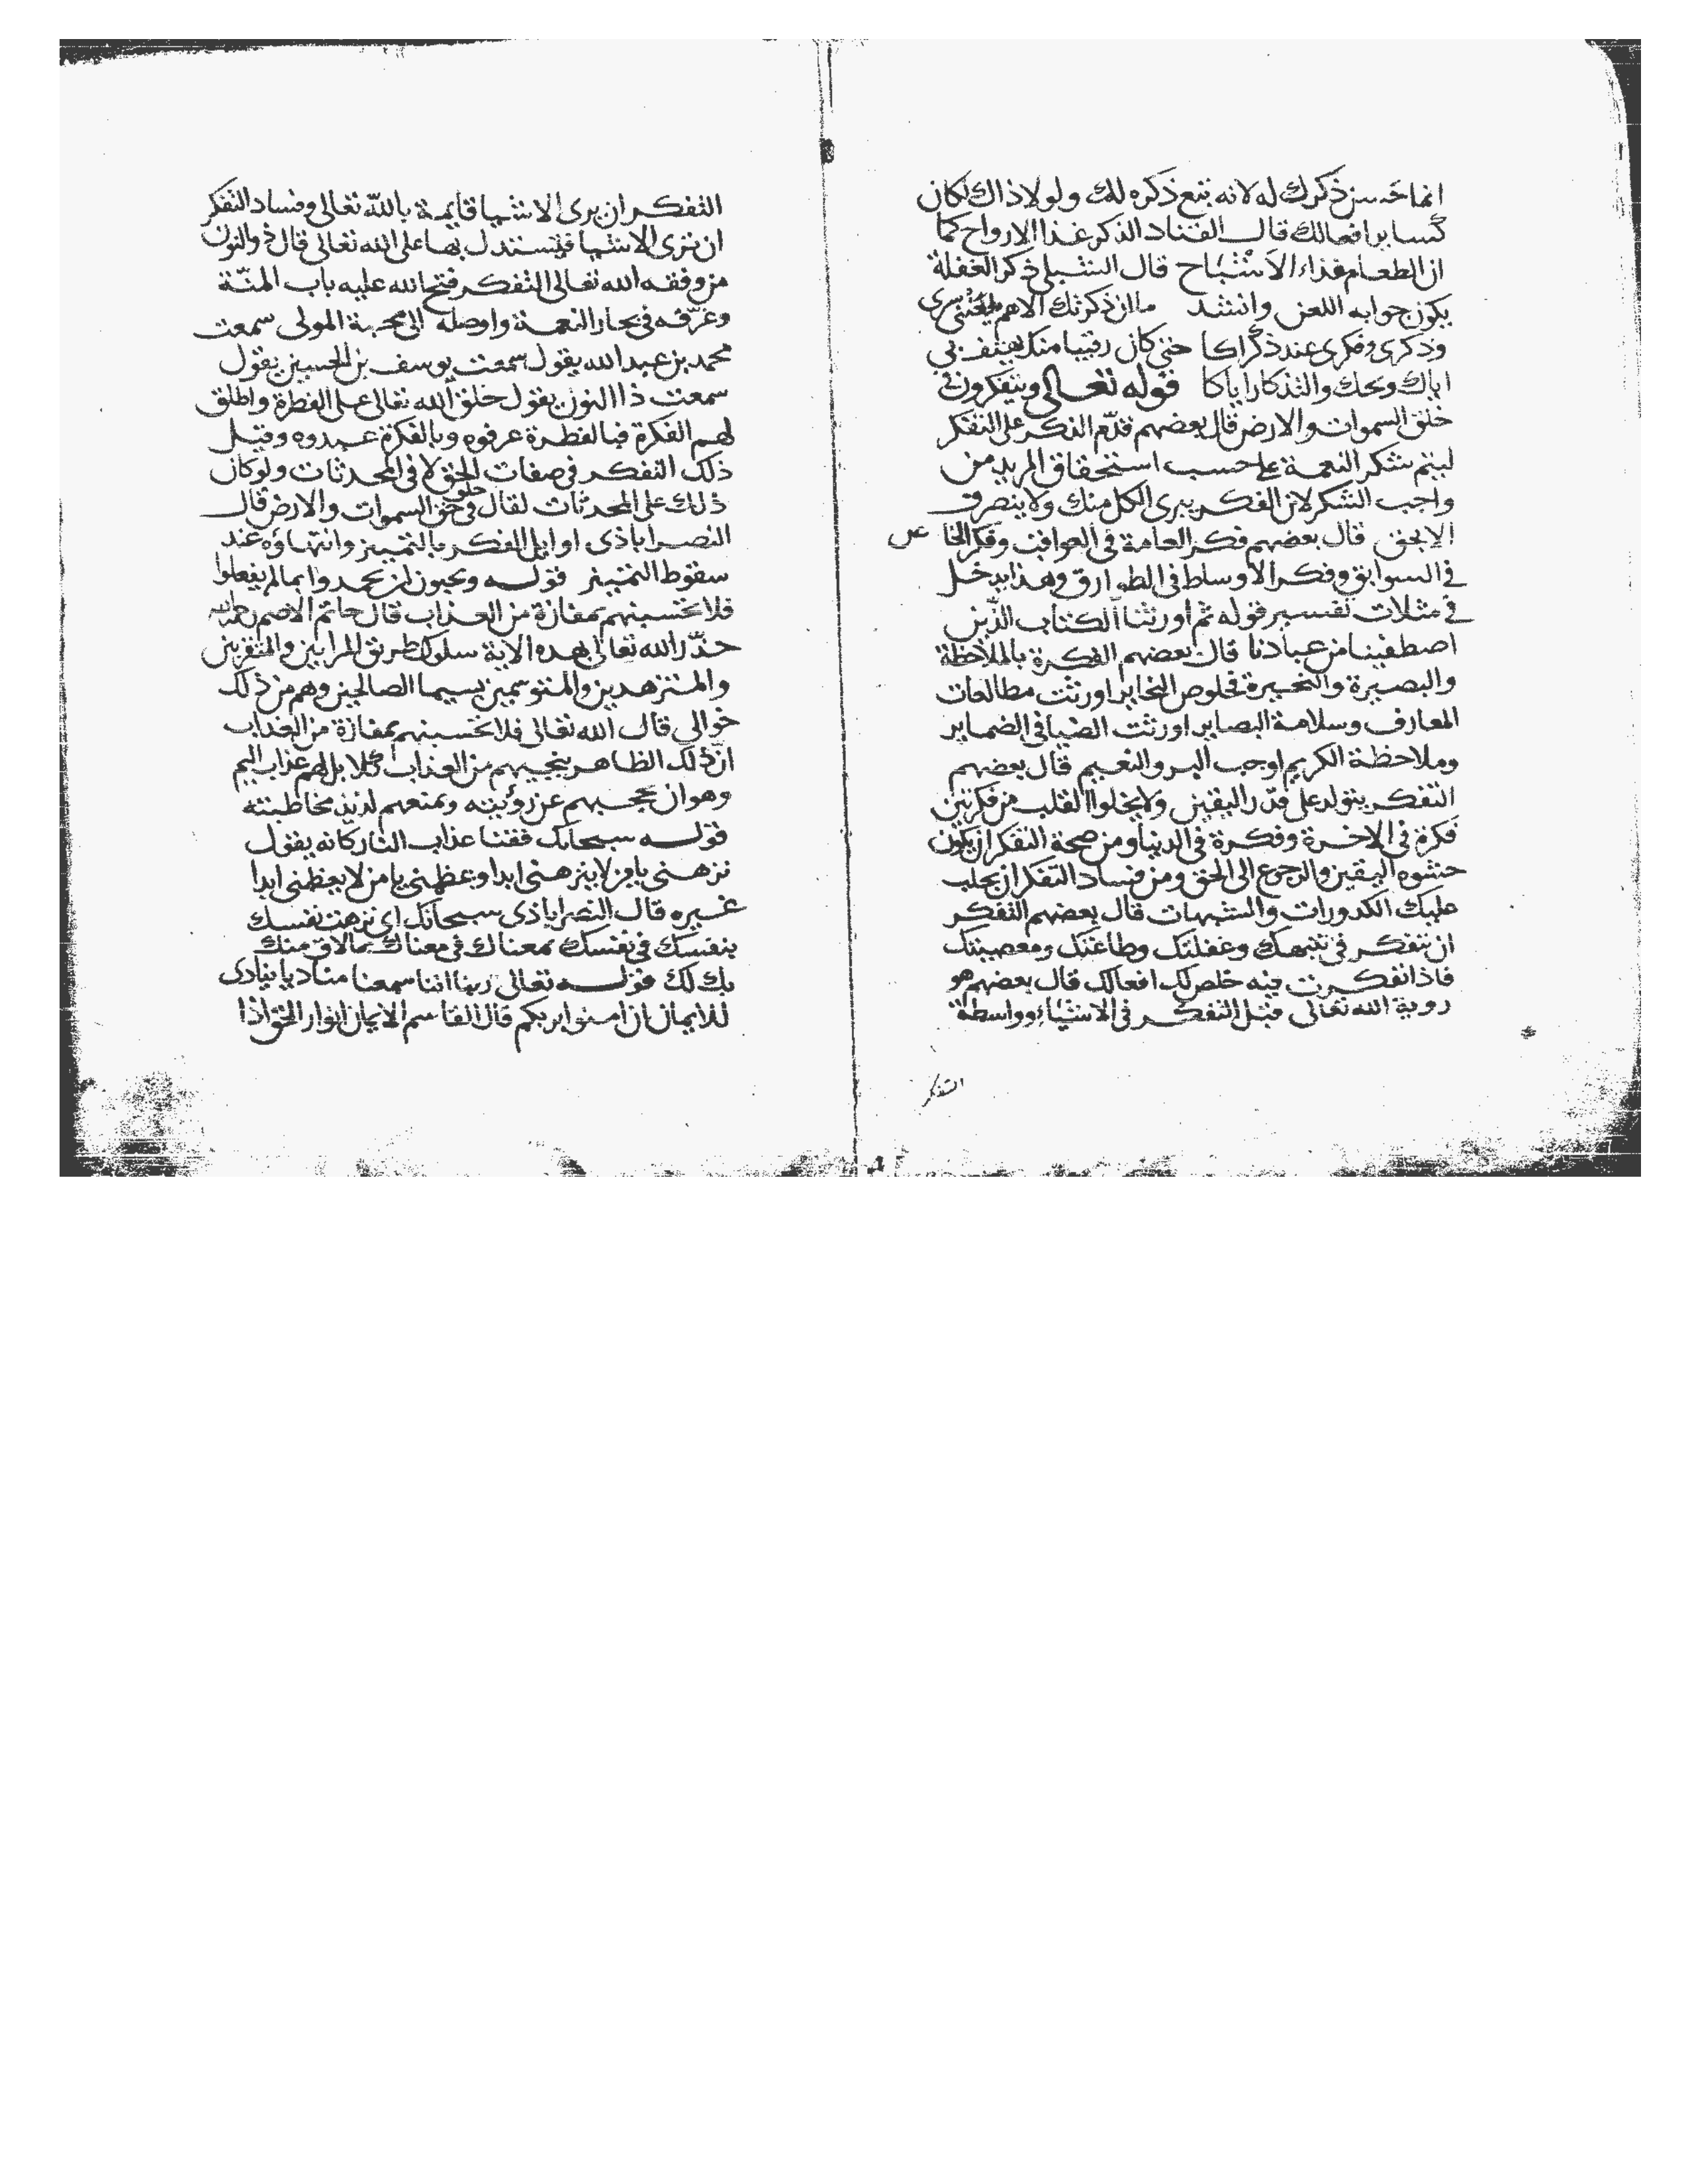 انما حسن ذكرك له لانه يتبع ذكره لك ولولا ذاك لكان
كساير افعالك قال القناد الذكر غذا الارواح كما
ان الطعام غذاء الاشباح قال الشبلي ذكر الغفلة
يكون جوابه اللعن وانشد ما ان ذكرتك الا هم يلعنني سري
وذكري وفكري عند ذكراكا حتى كان رقيبا منك يهتف بي
اياك ويحك والتذكار اياكا قوله تعالى ويتفكرون في
خلق السموات والارض قال بعضهم قدّم الذكر على التفكر
ليتم شكر النعمة على حسب استحقاق المريد من
واجب الشكر لان الفكر يبرى الكل منك ولا ينصرف
الا بحق قال بعضهم فكر العامة في العواقب وفكر الخاص
في السوابق وفكر الاوساط في الطوارق وهذا يدخل
في مثلات تفسير قوله ثم اورثنا الكتاب الذين
اصطفينا من عبادنا قال بعضهم الفكرة بالملاحظة
والبصيرة والنحيرة فخلوص النحاير اورثت مطالعات
المعارف وسلامة البصاير اورثت الضيا في الضماير
وملاحظة الكريم اوجب البر والنعيم قال بعضهم
التفكر يتولد على قدر اليقين ولا يخلوا القلب من فكرتين
فكرة في الاخرة وفكرة في الدنيا ومن صحة التفكر ان يكون
حشوه اليقين والرجوع الى الحق ومن فساد التفكر ان يجلب
عليك الكدورات والشبهات قال بعضهم التفكر
ان تتفكر في تنبهك وغفلتك وطاعتك ومعصيتك
فاذا تفكرت فيه خلص لك افعالك قال بعضهم هو
روية الله تعالى قبل التفكر في الاشياء وواسطة
التفكر
التفكر ان يرى الاشيا قايمة بالله تعالى وفساد التفكر
ان ترى الاشيا فيستدل بها على الله تعالى قال ذو النون
من وفقه الله تعالى التفكر فتح الله عليه باب المنّة
وغرّقه في بحار النعمة واوصله الى محبة المولى سمعت
محمد بن عبد الله يقول سمعت يوسف بن الحسين يقول
سمعت ذا النون يقول خلق الله تعالى على الفطرة واطلق
لهم الفكرة فبالفطرة عرفوه وبالفكرة عبدوه وقيل
ذلك التفكر في صفات الحق لا في المحدثات ولو كان
ذلك على المحدثات لقال في خلق السموات والارض قال
النصراباذى اوايل الفكر بالتمييز وانتهاؤه عند
سقوط التمييز قوله ويحبون ان يحمدوا بما لم يفعلوا
فلا تحسبنهم بمفازة من العذاب قال حاتم الاصم رحمه الله
حذّر الله تعالى بهده الاية سلوك طريق المرايين والمتقربين
والمتزهدين والمتوسمين بسيما الصالحين وهم من ذلك
خوالي قال الله تعالى فلا تحسبنهم بمفازة من العذاب
انّ ذلك الظاهر ينجيهم من العذاب كلا بل لهم عذاب اليم
وهو ان يحجبهم عن رؤيته ويمنعهم لذيذ مخاطبته
قوله سبحانك فقنا عذاب النار كانه يقول
نزهني يا من لا ينزهني ابدا وعظمني يا من لا يعظمني ابدا
غيره قال النصراباذى سبحانك اي نزهت نفسك
بنفسك في نفسك بمعناك في معناك بما لاق منك
بك لك قوله تعالى ربنا اننا سمعنا مناديا ينادى
للايمان ان امنوا بربكم قال القاسم الايمان انوار الحق اذا